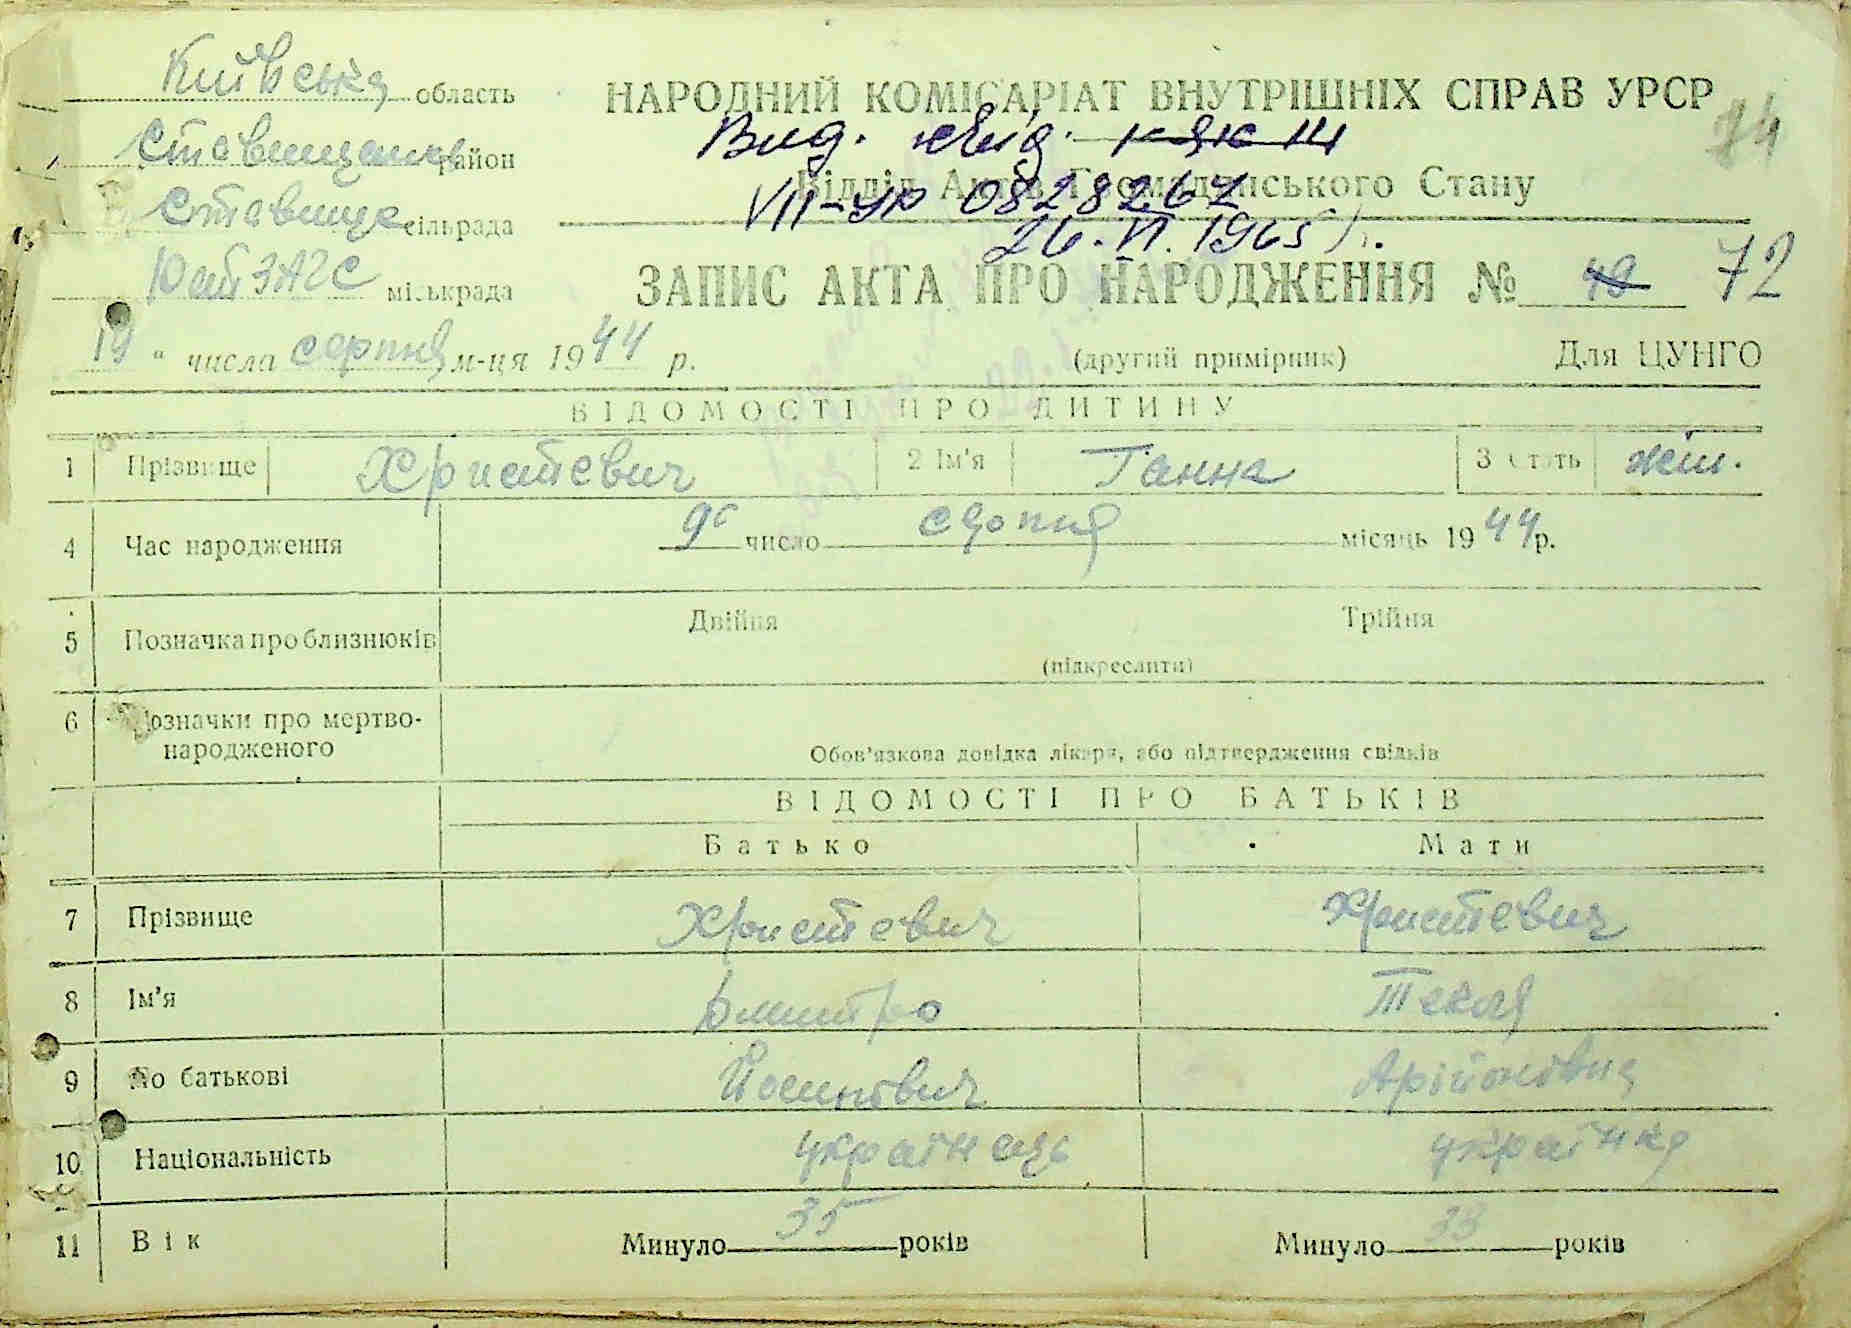 Київська область
НАРОДНИЙ КОМІСАРІАТ ВНУТРІШНІХ СПРАВ УРСР
Ставищанський район
Вид.
Відділ Актів Громадянського Стану
VII-УР 0828267
Ставище сільрада
26.VI.1965 г.
ЗАГС міськрада
ЗАПИС АКТА ПРО НАРОДЖЕННЯ № 49 72
19 " числа серпня м-ця 1944 р.
(другий примірник) Для ЦУНГО
ВІДОМОСТІ ПРО ДИТИНУ
1 Прізвище Христевич 2 Ім'я Ганна 3 Стать жін.
4 Час народження 9 число серпня місяць 1944 р.
5 Позначка про близнюків Двійня Трійня
(підкреслити)
6 Позначки про мертво-
народженого
Обов'язкова довідка лікаря, або підтвердження свідків
ВІДОМОСТІ ПРО БАТЬКІВ
Батько Мати
7 Прізвище Христевич Христевич
8 Ім'я Дмитро Текля
9 По батькові Йосипович Арійонівна
10 Національність українець українка
11 Вік Минуло 35 років Минуло 33 років